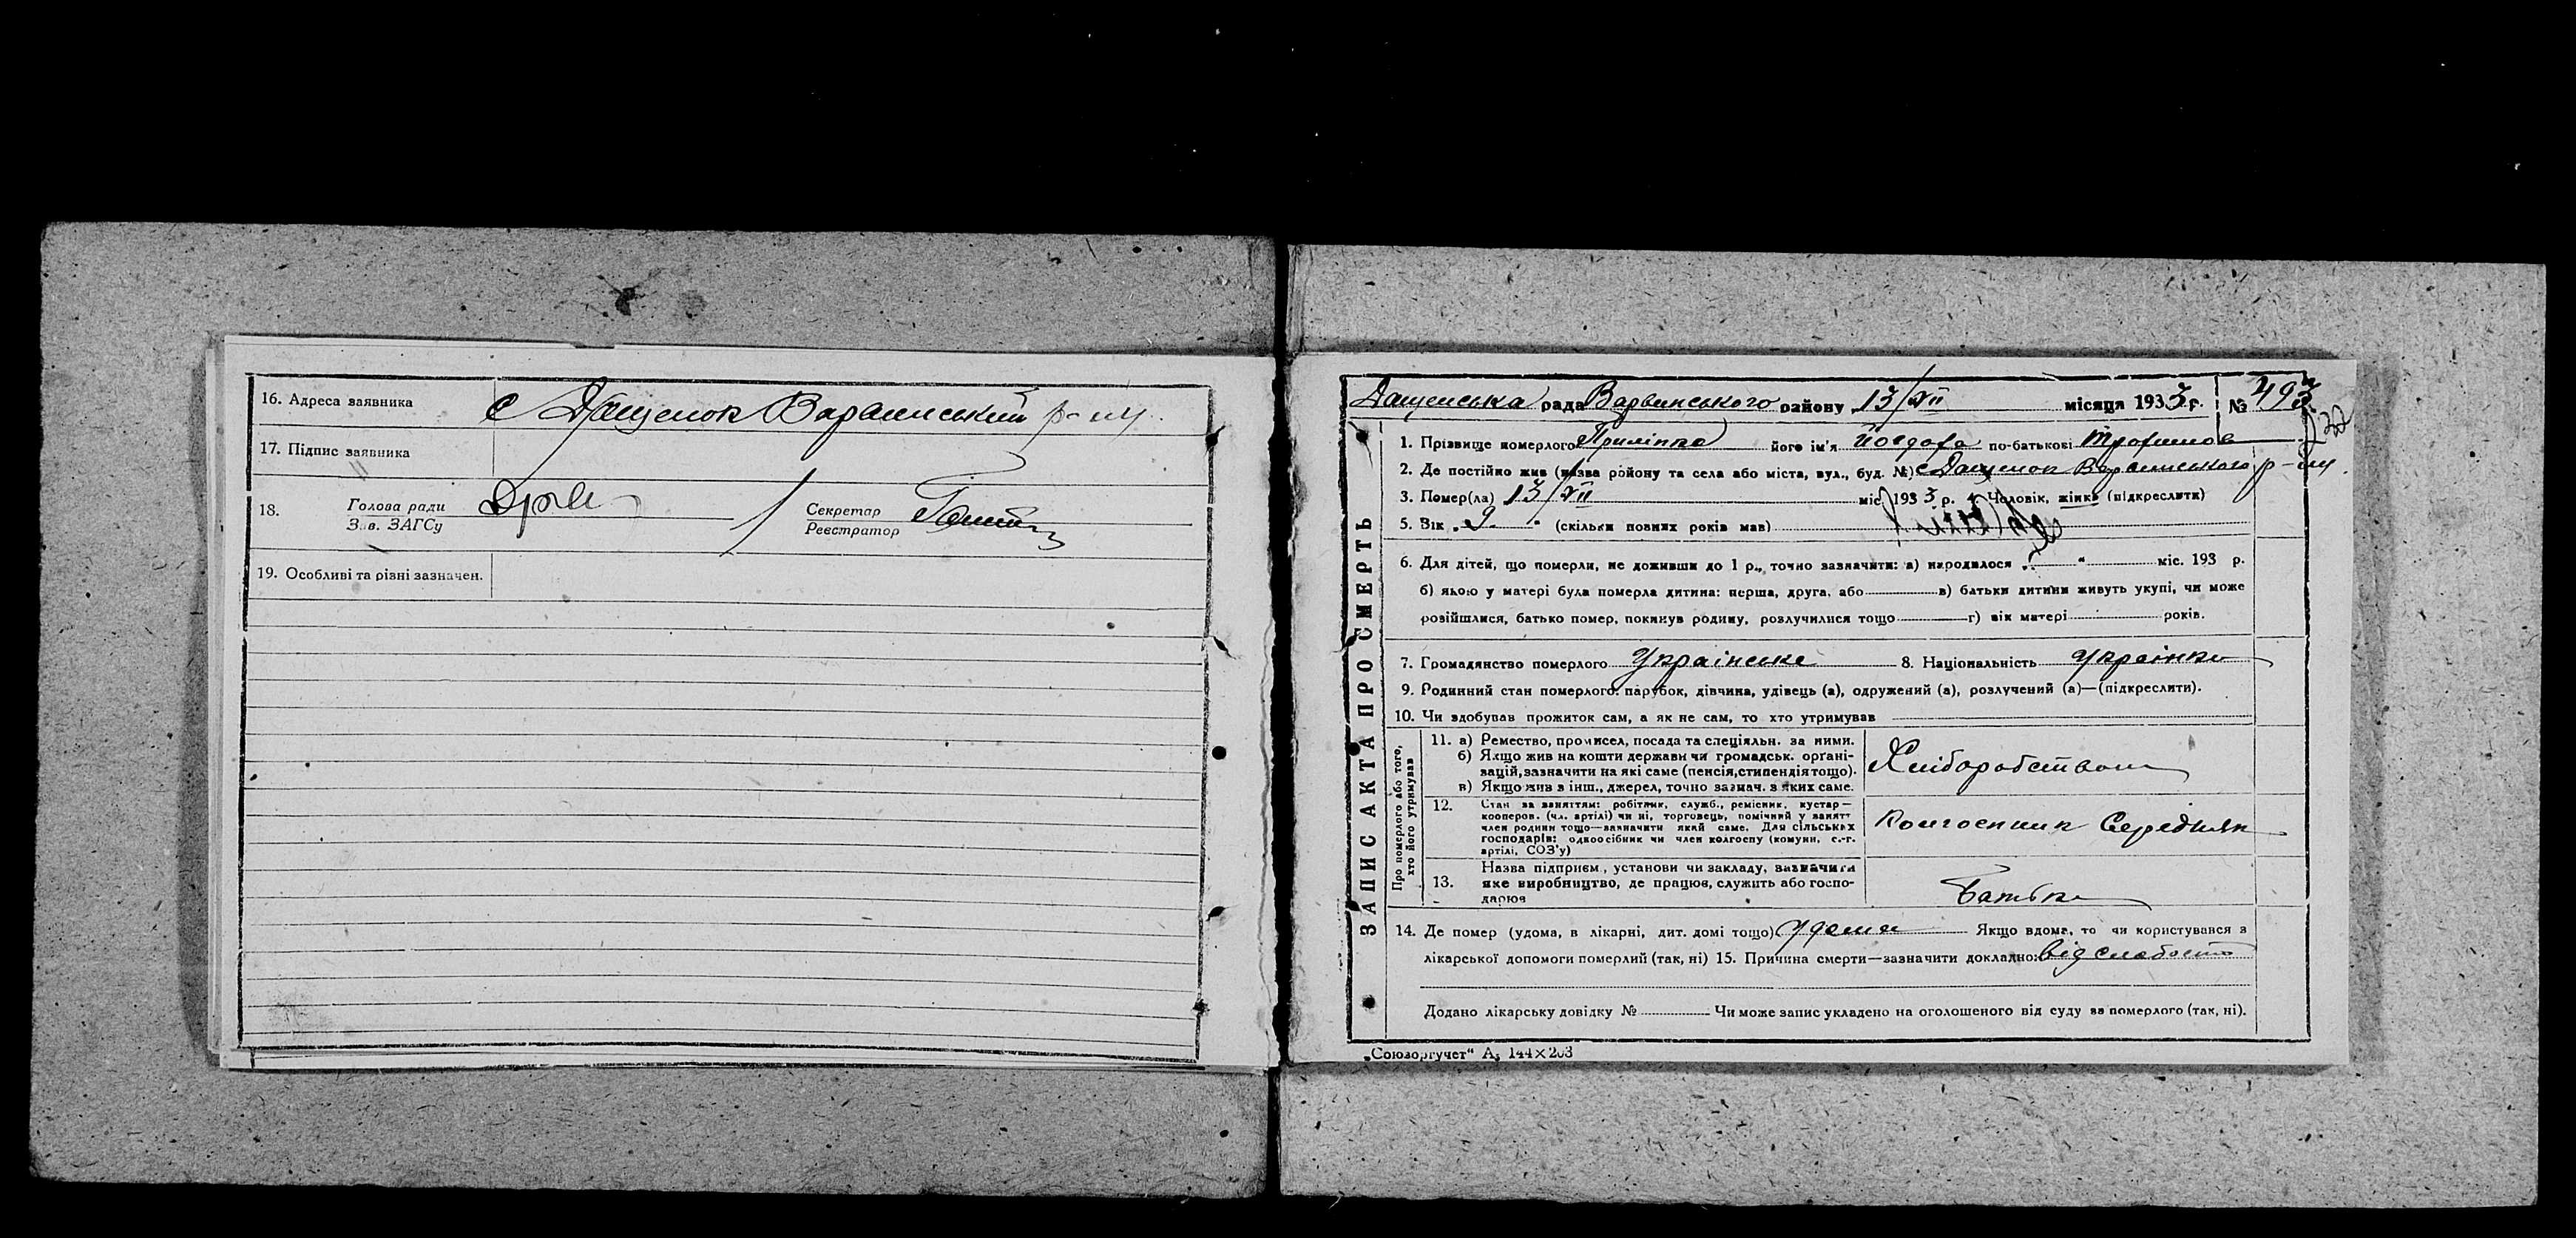 16. Адреса заявника с Дащенок Варвинський р-ну
17. Підпис заявника
18. Голова ради
Зав. ЗАГСу
Секретар
Реєстратор
19. Особливі та різні зазначен.
ЗАПИС АКТА ПРО СМЕРТЬ
Дащенська рада Варвинського району 13/VII місяця 1933 р. № 493
1. Прізвище померлого Приліпка його ім'я по-батькові Трофимов
2. Де постійно жив (назва району та села або міста, вул., буд. №) с Дащенок Варвинського р-ну
3. Помер(ла) 13/VII міс. 1933 р. 4. Чоловік, жінка (підкреслити)
5. Вік „9 " (скільки повних років мав)
6. Для дітей, що померли, не доживши до 1 р., точно зазначити: а) народилося „ " міс. 193 р.
б) якою у матері була померла дитина: перша, друга, або в) батьки дитини живуть укупі, чи може
розійшлися, батько помер, покинув родину, розлучилися тощо г) вік матері років.
7. Громадянство померлого Українське 8. Національність Українка
9. Родинний стан померлого: парубок, дівчина, удівець (а), одружений (а), розлучений (а)—(підкреслити).
10. Чи здобував прожиток сам, а як не сам, то хто утримував
Про померлого або того,
хто його утримував
11. а) Ремество, промисел, посада та спеціяльн. за ними.
б) Якщо жив на кошти держави чи громадськ. орґані-
зацій, зазначити на які саме (пенсія, стипендія тощо).
в) Якщо жив з інш., джерел, точно зазнач. з яких саме.
Хліборобством
12. Стан за заняттям: робітник, служб., ремісник, кустар—
кооперов. (чл. артілі) чи ні, торговець, помічний у занятт
член родини тощо—зазначити який саме. Для сільських
господарів: одноосібник чи член колгоспу (комуни, с.-г.
артілі, СОЗ'у)
Колгоспник Середняк
13. Назва підприєм., установи чи закладу, зазначити
яке виробництво, де працює, служить або госпо-
дарює
Батько
14. Де помер (удома, в лікарні, дит. домі тощо) удома Якщо вдома, то чи користувався з
лікарської допомоги померлий (так, ні) 15. Причина смерти—зазначити докладно: від слабости
Додано лікарську довідку № Чи може запис укладено на оголошеного від суду за померлого (так, ні).
„Союзоргучет" А₅ 144×203